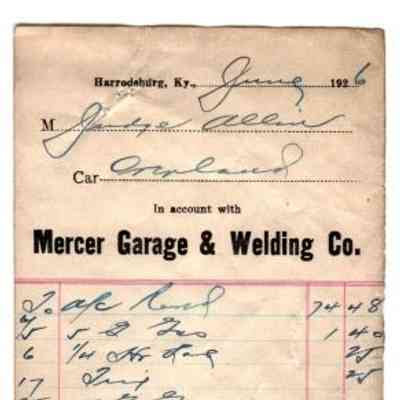 Harrodsburg, Ky., June 1926
M Judge Allin
Car Overland
In account with
Mercer Garage & Welding Co.
To a/c Rend 74 48
5 5 G Gas 1 40
6 1/4 Hr Lab 25
17 25